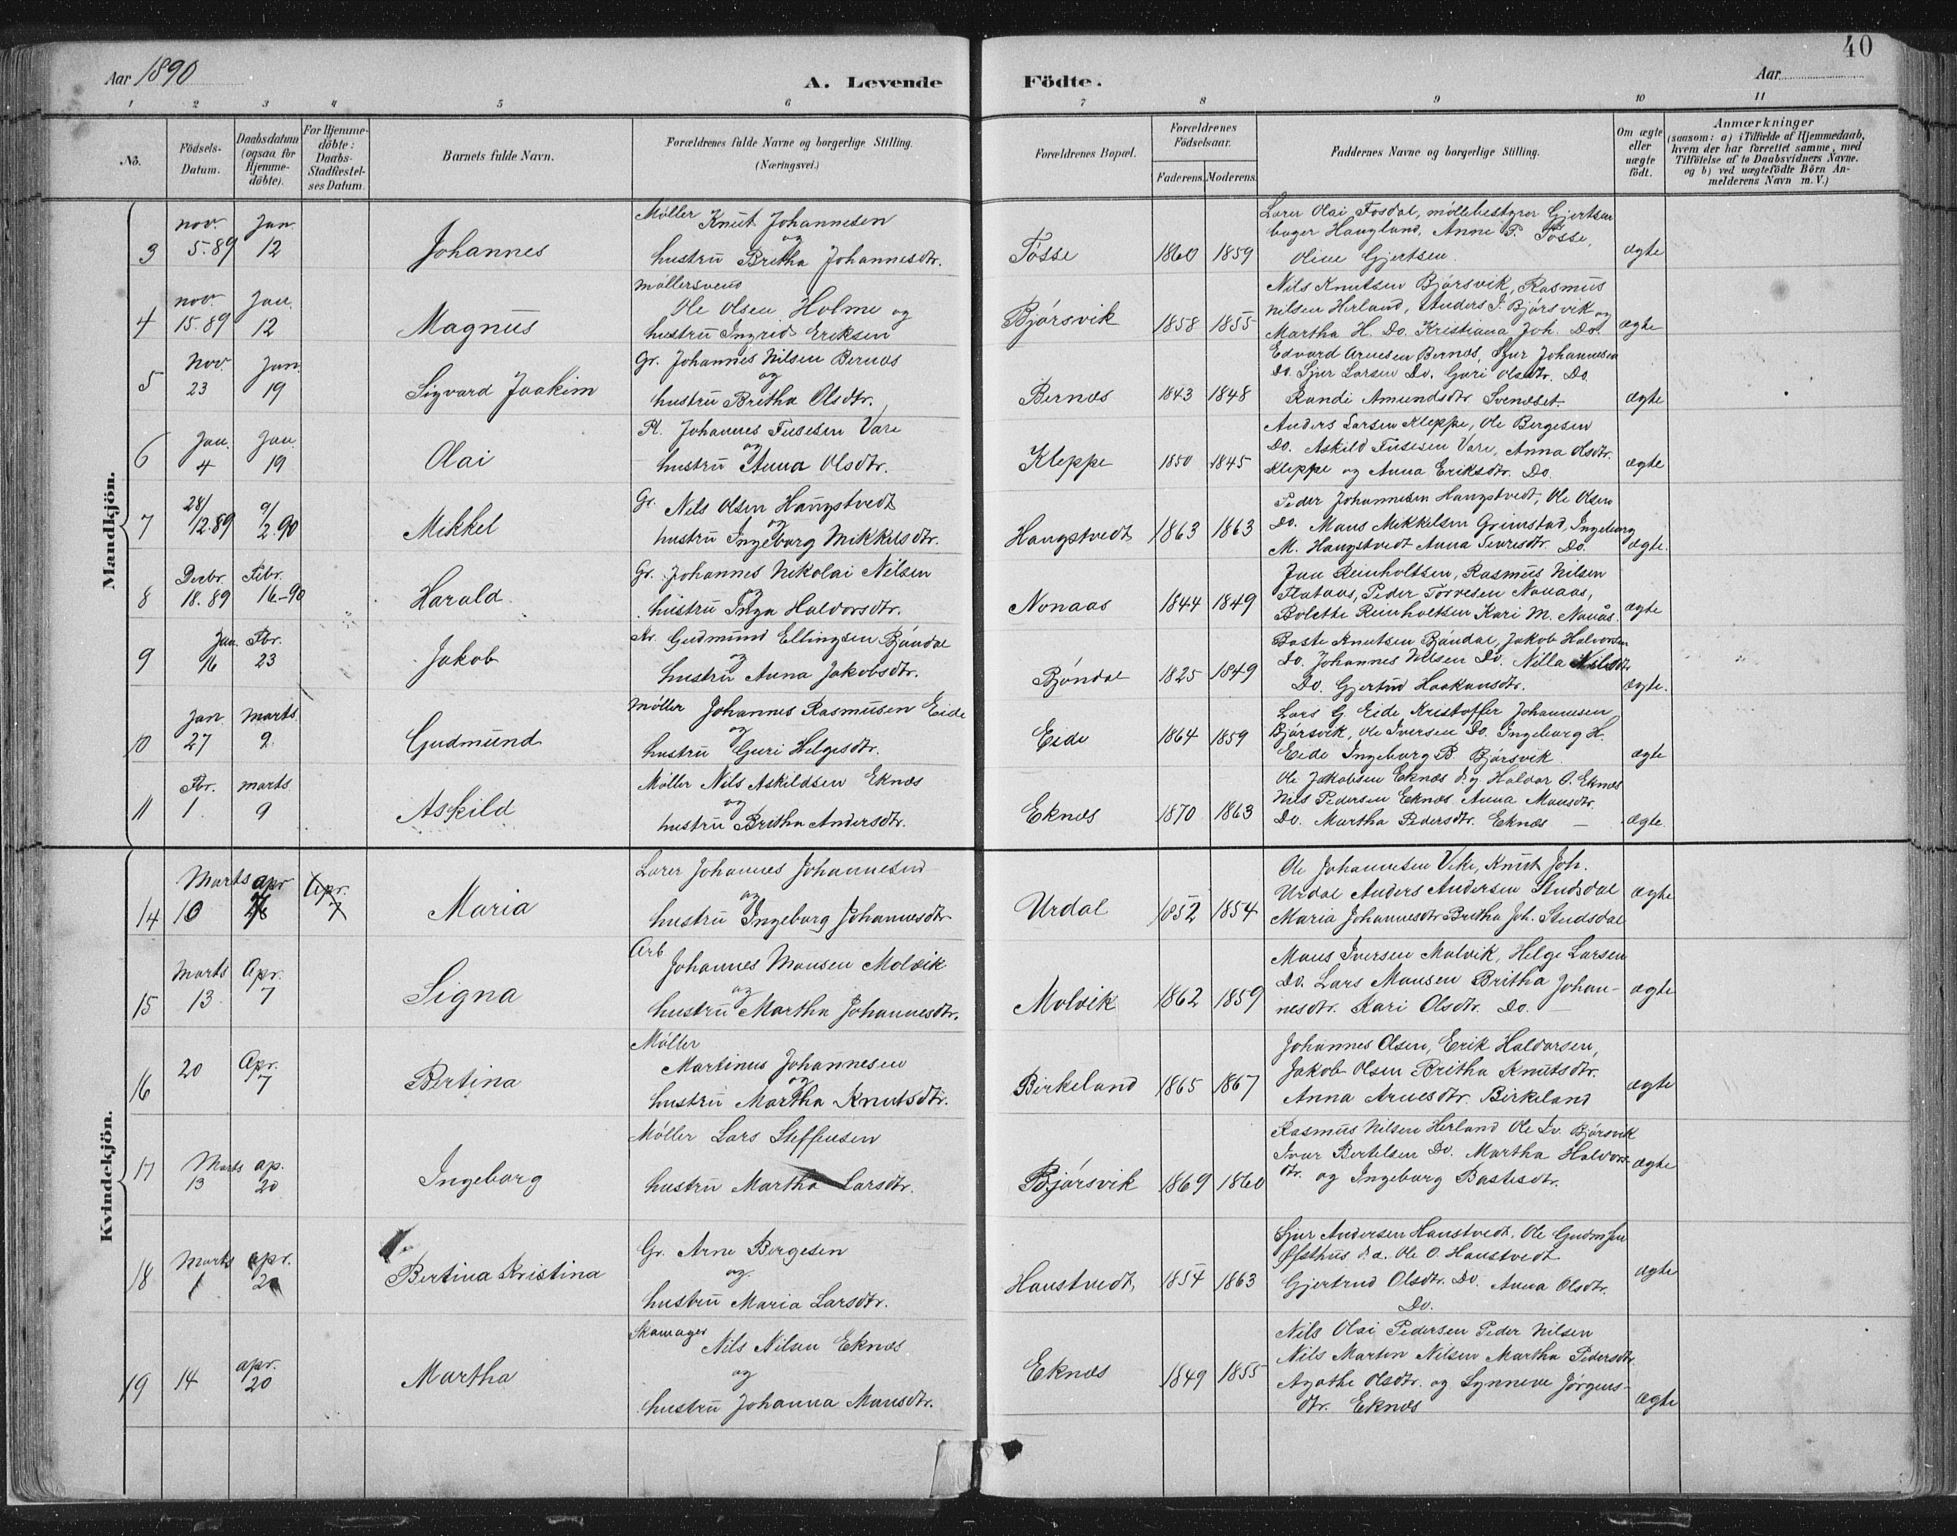 40
Aar 1890
A. Levende Födte.
Aar
1 2 3 4 5 6 7 8 9 10 11
No.
Födsels-Datum.
Daabsdatum (ogsaa for Hjemme-döbte).
For Hjemme-döbte: Daabs-Stadfæstel-ses Datum.
Barnets fulde Navn.
Forældrenes fulde Navne og borgerlige Stilling.
(Næringsvei.)
Forældrenes Bopæl.
Forældrenes Födselsaar.
Faderens. Moderens.
Faddernes Navne og borgerlige Stilling.
Om ægte eller uægte födt.
Anmærkninger
(saasom: a) i Tilfælde af Hjemmedaab,
hvem der har forrettet samme, med
Tilföielse af to Daabsvidners Navne.
og b) ved uægtefödte Börn An-
melderens Navn m. V.)
Mandkjön.
3 nov. 5.89 Jan. 12 Johannes
Møller Knut Johannesen
og
hustru Britha Johannesdtr.
Tøsse 1860 1859
Lærer Olai Fosdal, møllebestyrer Gjertsen
bager Haugland, Anne P. Tøsse,
Oline Gjertsen
ægte
4 nov. 15.89 Jan. 12 Magnus
møllersvend
Ole Olsen Holme og
hustru Ingrid Eriksen
Bjørsvik 1858 1855
Nils Knutsen Bjørsvik, Rasmus
Nilsen Herland, Anders J. Bjørsvik og
Martha H. Do. Kristiana Joh. Do.
ægte
5 Nov. 23 Jan. 19 Sigvard Joakim
Gr. Johannes Nilsen Bernæs
og
hustru Britha Olsdtr.
Bernæs 1843 1848
Edvard Arnesen Bernæs, Sjur Johannesen
Do. Sjur Larsen Do. Guri Olsdtr. Do.
Randi Amundsdtr Svenæset.
ægte
6 Jan. 4 Jan 19 Olai
Pl. Johannes Fusesen Vare
og
hustru Anna Olsdtr.
Kleppe 1850 1845
Anders Larsen Kleppe, Ole Bergesen
Do. Askild Fusesen Vare, Anna Olsdtr.
Kleppe og Anna Eriksdtr. Do
ægte
7 28/12.89 9/2.90 Mikkel
Gr. Nils Olsen Haugstvedt
og
hustru Ingeborg Mikkelsdtr.
Haugstvedt 1863 1863
Peder Johannesen Haugstvedt, Ole Olsen
Do. Mans Mikkelsen Grimstad, Ingeborg
M. Haugstvedt Anna Iversdtr. Do.
ægte.
8 Decbr. 18.89 Febr. 16.-90 Harald.
Gr. Johannes Nikolai Nilsen
og
hustru Inga Haldorsdtr.
Nonaas 1844 1849
Jan Reinholtsen, Rasmus Nilsen
Flataas, Peder Torvesen Nonaas,
Bolette Reinholtsen Kari M. Nonås.
ægte
9 Jan. 16 Fbr. 23 Jakob
Gudmund Ellingsen Bjøndal
og
hustru Anna Jakobsdtr.
Bjøndal 1825 1849
Baste Knutsen Bjøndal, Jakob Halvorsen
Do. Johannes Nilsen Do. Nilla Nilsdtr
Do. Gjertrud Haakonsdtr.
ægte.
10 Jan. 27 Marts. 9 Gudmund
Møller Johannes Rasmusen Eide
og
hustru Guri Helgesdtr.
Eide 1864 1859
Lars G. Eide Kristoffer Johannesen
Bjørsvik, Ole Iversen Do. Ingeborg H.
Eide Ingeborg B. Bjørsvik.
ægte
11 Fbr. 1. marts. 9 Askild
Møller Nils Askildsen Eknæs
og
hustru Britha Andersdtr.
Eknæs 1870 1863
Ole Jakobsen Eknæs d.y. Haldor O. Eknæs
Nils Pedersen Eknæs. Anna Monsdtr.
Do. Martha Pedersdtr. Eknæs —
ægte.
Kvindekjön.
14 Marts 10 apr Apr. 7 Maria
Lærer Johannes Johannesen
og
hustru Ingeborg Johannesdtr
Urdal 1852 1854
Ole Johannesen Veke, Knut Joh.
Urdal Anders Andersen Studsdal
Maria Johannesdtr Britha Joh. Studsdal
ægte
15 Marts 13 Apr. 7 Signa
Arb Johannes Monsen Molvik
og
hustru Martha Johannesdtr.
Molvik 1862 1859
Mons Iversen Molvik, Helge Larsen
Do. Lars Monsen Britha Johan-
nesdtr. Kari Olsdtr. Do.
ægte
16 20 Apr. 7 Bertina
Møller
Martinus Johannesen
og
hustru Martha Knutsdtr.
Birkeland 1865 1867
Johannes Olsen, Erik Haldorsen,
Jakob Olsen Britha Knutsdtr.
Anna Arnesdtr. Birkeland
ægte
17 Marts 13 ap. 20 Ingeborg
Møller Lars Steffensen
hustru Martha Larsdtr.
Bjørsvik 1869 1860
Rasmus Nilsen Herland Ole Do. Bjørsvik
Ivar Bertelsen Do. Martha Haldors-
dtr. og Ingeborg Bastesdtr.
ægte
18 Marts 1 apr. 20 Bertina Kristina
Gr. Arne Bergesen
og
hustru Maria Larsdtr.
Haustvedt, 1854 1863
Sjur Andersen Haustvedt, Ole Gudmsen
Øfsthus d.a. Ole O. Haustvedt
Gjertrud Olsdtr. Do. Anna Olsdtr.
Do.
ægte
19 14 apr. 20 Martha
Skomager Nils Nilsen Eknæs
og
hustru Johanna Monsdtr.
Eknæs 1849 1855
Nils Olai Pedersen Peder Nilsen
Nils Martin Nilsen Martha Pedersdtr.
Agathe Olsdtr. og Synneve Jørgens-
dtr. Eknæs
ægte